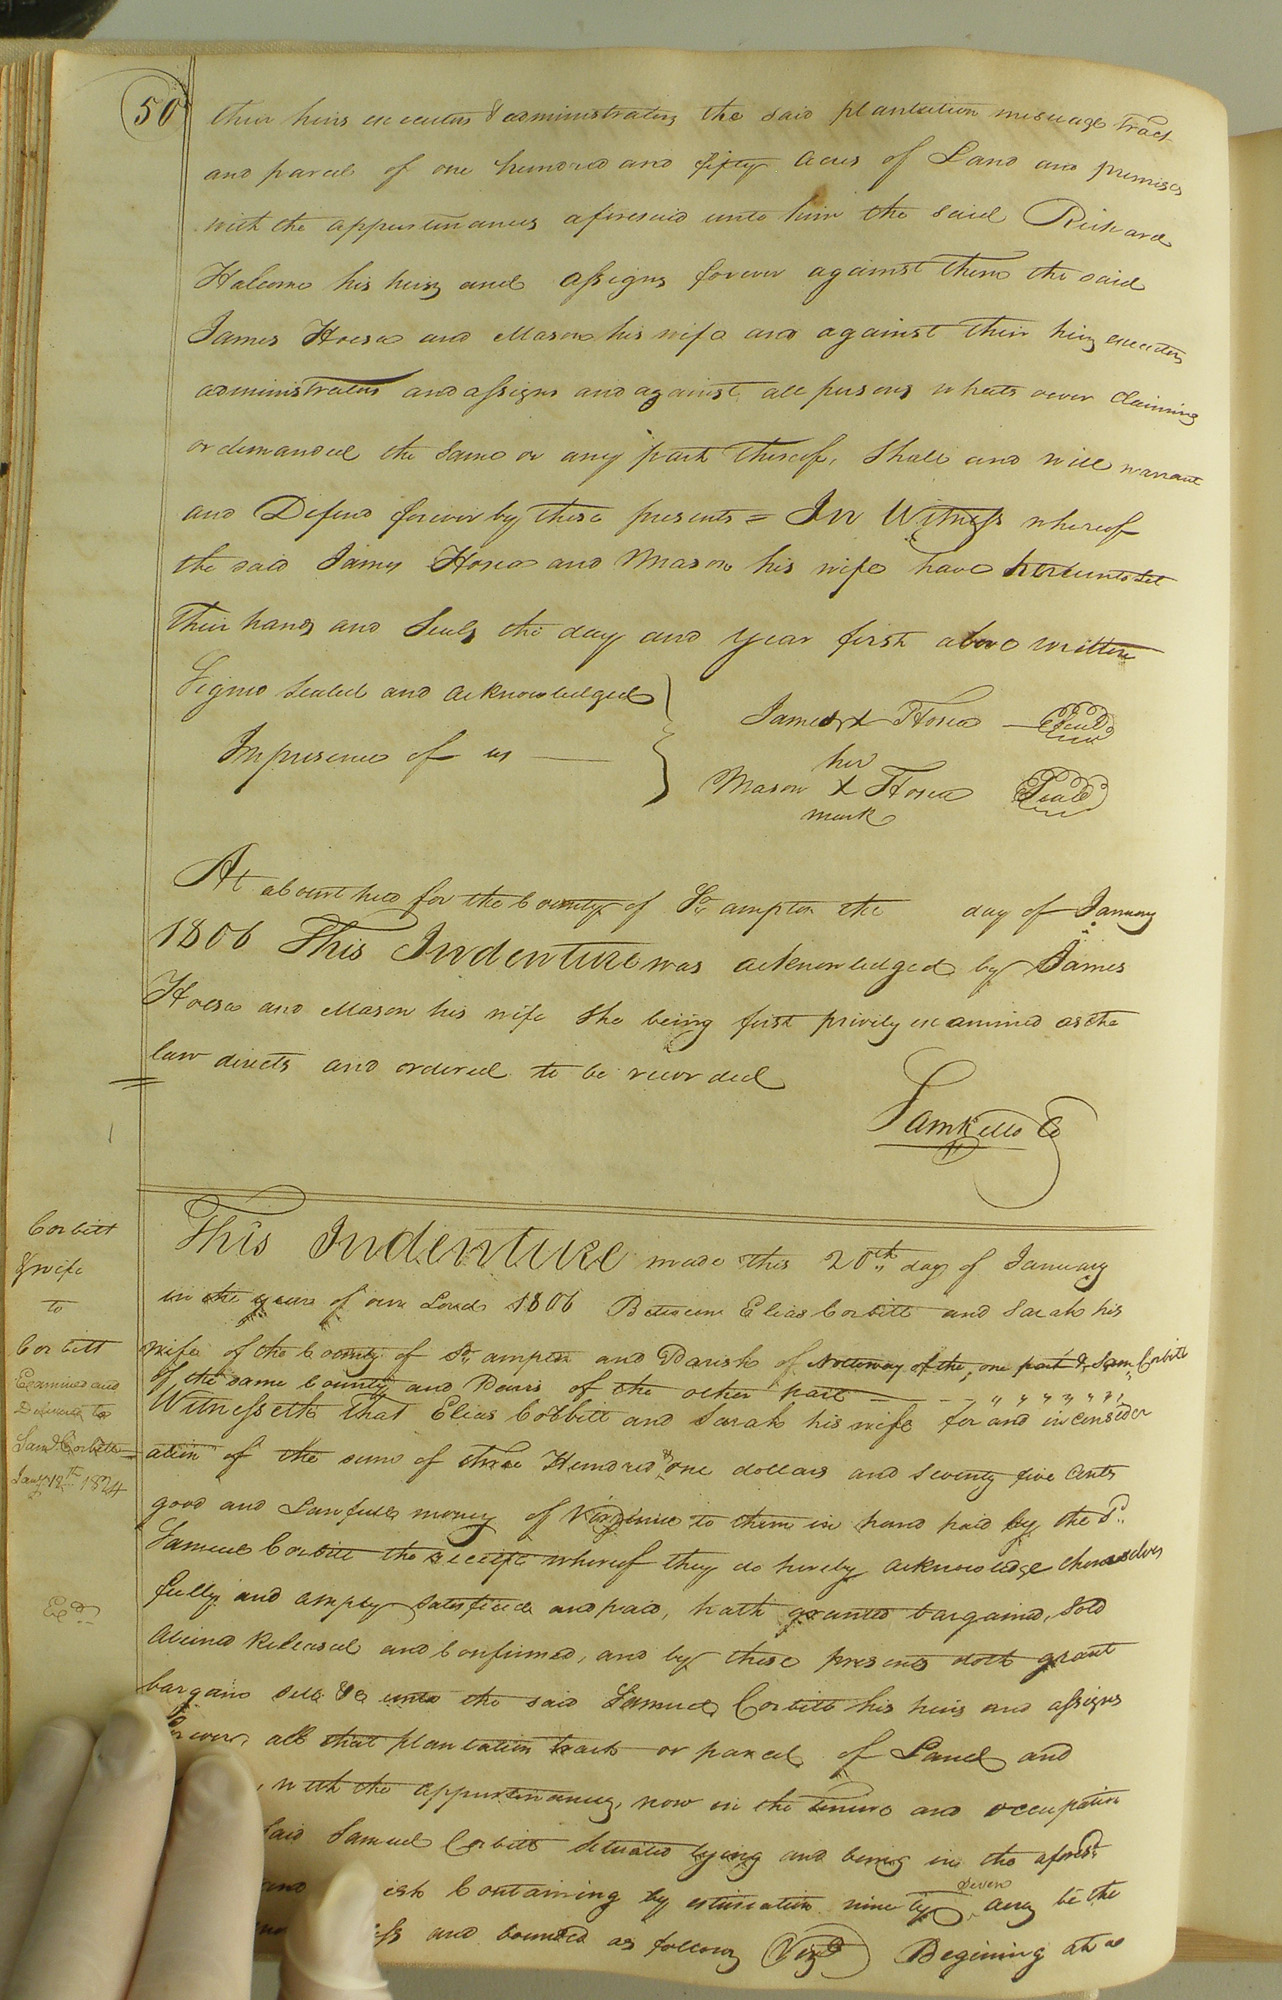 50
their heirs executors & administrators the said plantation messuage Tract
and parcel of one hundred and fifty acres of Land and premises
with the appurtenances aforesaid unto him the said Richard
Halcome his heirs and assigns forever against them the said
James Hosea and Mason his wife and against their heirs executors
administrators and assigns and against all persons whatsoever Claiming
or demanded the same or any part thereof, Shall and will warrant
and Defend forever by these presents = In Witness whereof
the said James Hosea and Mason his wife have hereunto set
their hands and Seals the day and year first above written
Signed Sealed and acknowledged
In presence of us
James x Hosea Seal
her
Mason x Hosea Seal
mark
At a Court held for the County of So. ampton the day of January
1806 This Indenture was acknowledged by James
Hosea and Mason his wife She being first privily examined as the
law directs and ordered to be recorded
Sam Kello C
Corbitt
& wife
to
Corbitt
Examined and
Delivered to
Saml Corbitt
Jany 12th 1824
Exd
This Indenture made this 20th day of January
in the year of our Lord 1806 Between Elias Corbitt and Sarah his
wife of the County of So. ampton and Parish of Nottoway of the one part & Sam Corbitt
of the same County and Paris of the other part
Witnesseth that Elias Cobbitt and Sarah his wife for and in consider
ation of the sum of three Hundred & one dollars and Seventy five Cents
good and Lawfull money of Virginia to them in hand paid by the Sd.
Samuel Corbitt the receipt whereof they do hereby acknowledge themselves
fully and amply satisfied and paid, hath granted bargained, Sold
aliened Released and Confirmed, and by these presents doth grant
bargain sell &c unto the said Samuel Corbitt his heirs and assigns
forever, all that plantation tract or parcel of Land and
, with the appurtenances, now in the tenure and occupation
said Samuel Corbitt Situated lying and being in the aforesd
and ish Containing by estimation ninety seven acres be the
ss and bounded as follows (Vizt) Begining at a